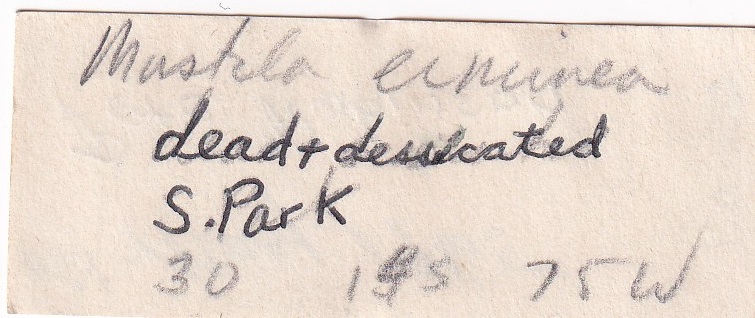 Mustela erminea
dead + dessicated
S. Park
30 S 75W